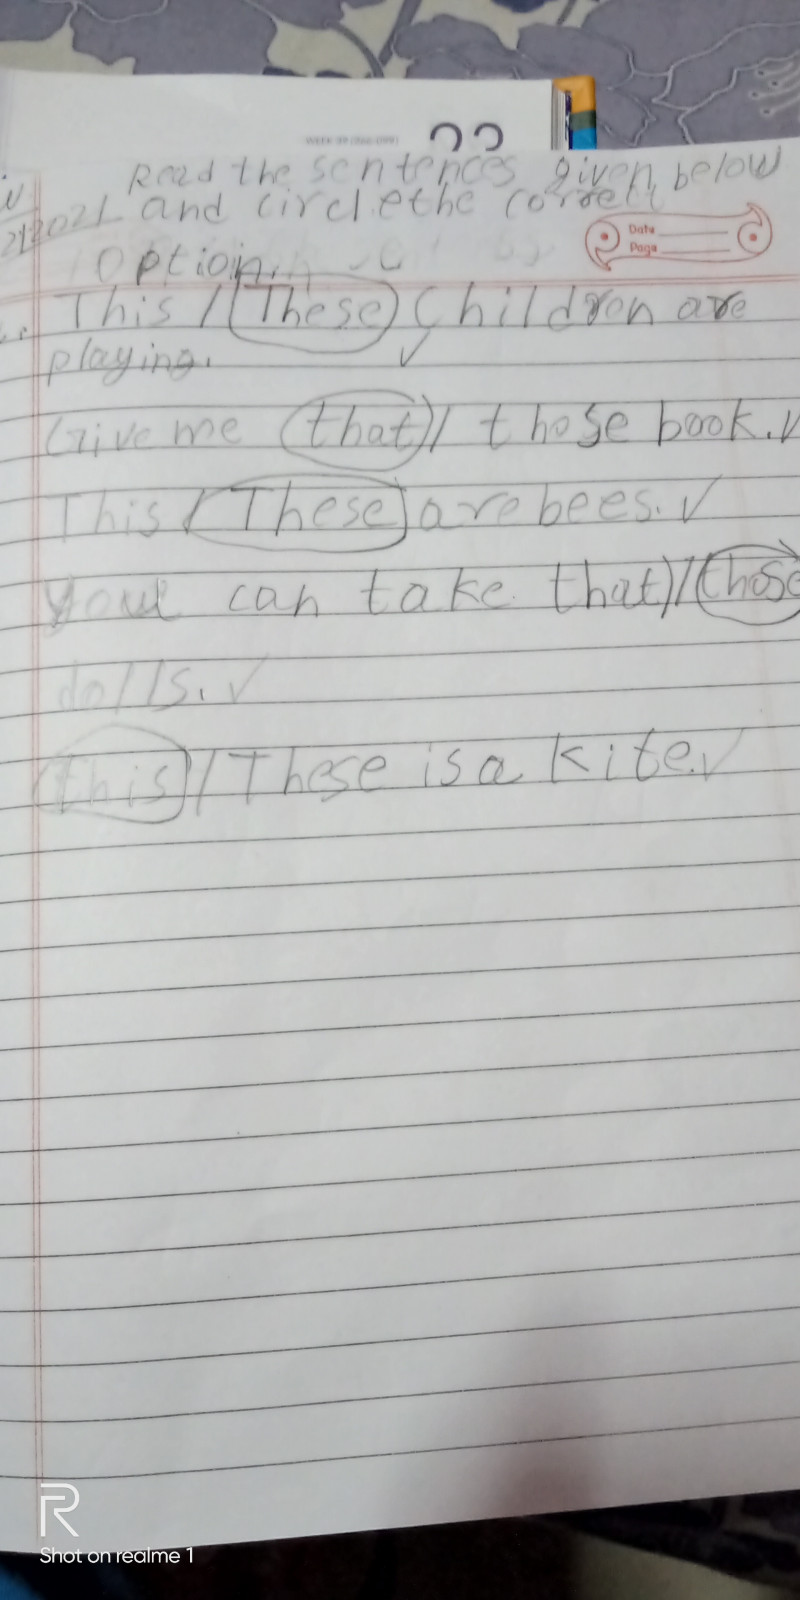 Read the sentences given below
2021 and circle the correct
Date
Page
Option.
This / These Children are
playing.
Give me that / those book.
This / These are bees.
you can take that / those
dolls.
this / These is a kite.
R
Shot on realme 1